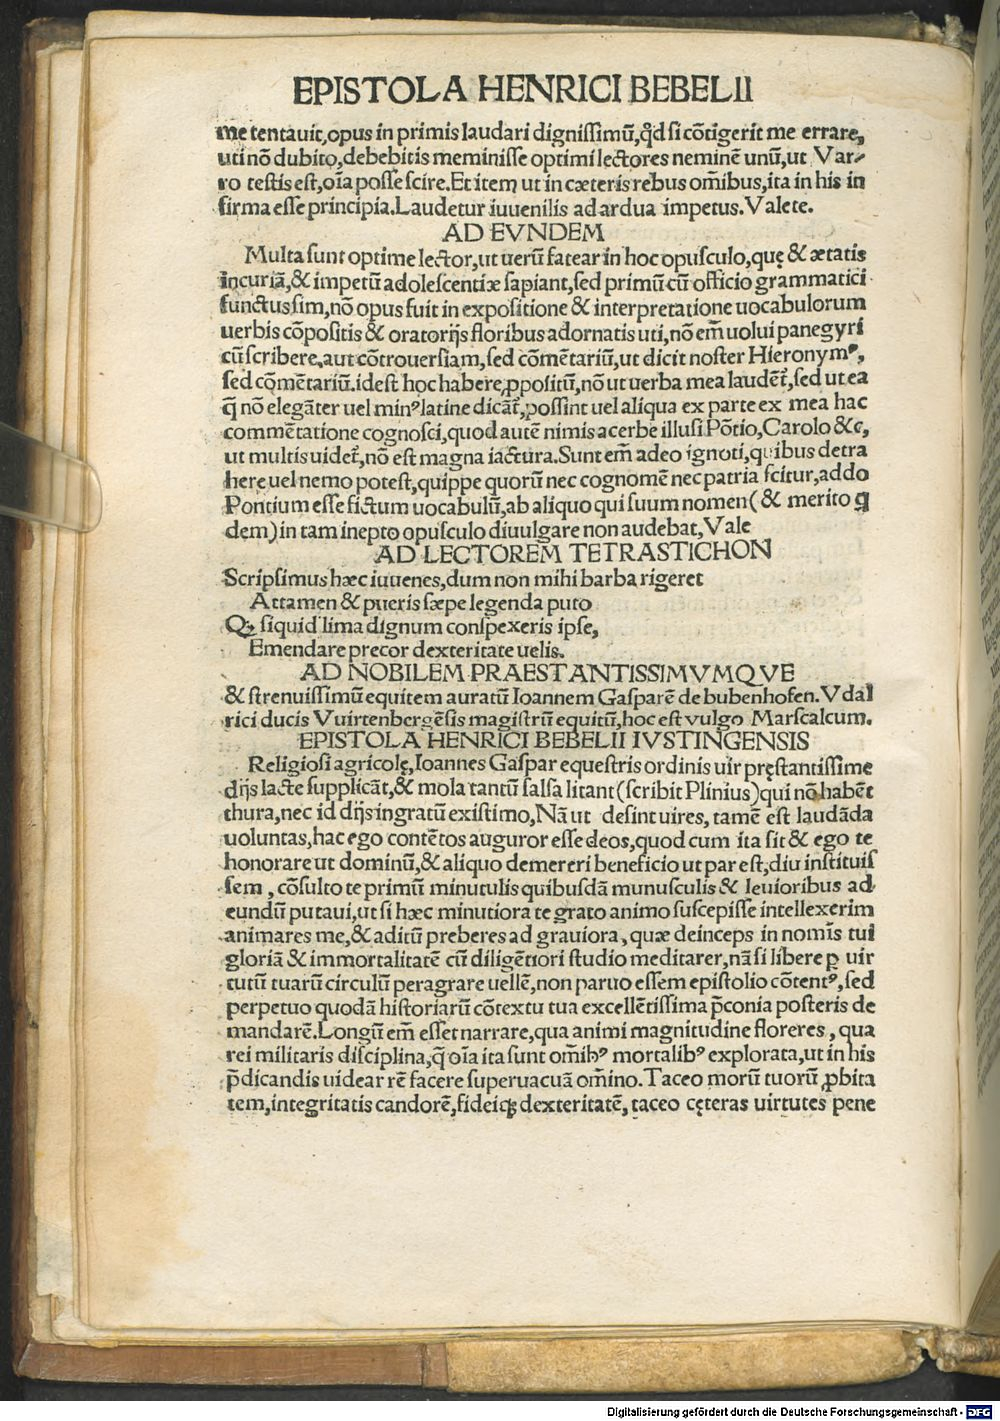 EPISTOLA HENRICI BEBELII
me tentauit,opus in primis laudari dignissimū,qd̓ si cōtigerit me errare,
uti nō dubito,debebitis meminisse optimi lectores neminē unū,ut Var-
ro testis est,oīa posse scire.Et item ut in cæteris rebus om̄ibus,ita in his in
firma esse principia.Laudetur iuuenilis ad ardua impetus.Valete.
AD EVNDEM
Multa sunt optime lector,ut uerū fatear in hoc opusculo,quę & ætatis
incuriā,& impetū adolescentiæ sapiant,sed primū cū officio grammatici
functus sim,nō opus fuit in expositione & interpretatione uocabulorum
uerbis cōpositis & oratorijs floribus adornatis uti,nō em̄ uolui panegyri
cū scribere,aut cōtrouersiam,sed cōmētariū,ut dicit noster Hieronymꝰ,
sed cōmētariū.idest hoc habere ꝓpositū,nō ut uerba mea laudēt᷑,sed ut ea
q̄ nō elegāter uel minꝰ latine dicāt᷑,possint uel aliqua ex parte ex mea hac
commētatione cognosci,quod autē nimis acerbe illusi Pōtio,Carolo &c,
ut multis uidet᷑,nō est magna iactura.Sunt em̄ adeo ignoti,quibus detra
here uel nemo potest,quippe quorū nec cognomē nec patria scitur,addo
Pontium esse fictum uocabulū,ab aliquo qui suum nomen( & merito q
dem)in tam inepto opusculo diuulgare non audebat,Vale
AD LECTOREM TETRASTICHON
Scripsimus hæc iuuenes,dum non mihi barba rigeret
Attamen & pueris sæpe legenda puto
Qꝫ siquid lima dignum conspexeris ipse,
Emendare precor dexteritate uelis.
AD NOBILEM PRAESTANTISSIMVMQVE
& strenuissimū equitem auratū Ioannem Gasparē de bubenhofen.Vdal
rici ducis Vuirtenbergēsis magistrū equitū,hoc est vulgo Marscalcum.
EPISTOLA HENRICI BEBELII IVSTINGENSIS
Religiosi agricolę,Ioannes Gaspar equestris ordinis uir pręstantissime
dijs lacte supplicāt,& mola tantū salsa litant(scribit Plinius)qui nō habēt
thura,nec id dijs ingratū existimo,Nā ut desint uires, tamē est laudāda
uoluntas,hac ego contētos auguror esse deos,quod cum ita sit & ego te
honorare ut dominū,& aliquo demereri beneficio ut par est,diu instituis
sem , cōsulto te primū minutulis quibusdā munusculis & leuioribus ad
eundū putaui,ut si hæc minutiora te grato animo suscepisse intellexerim
animares me,& aditū preberes ad grauiora,quæ deinceps in nomīs tui
gloriā & immortalitatē cū diligētiori studio meditarer,nā si libere ꝑ uir
tutū tuarū circulū peragrare uellē,non paruo essem epistolio cōtentꝰ,sed
perpetuo quodā historiarū cōtextu tua excellētissima p̄conia posteris de
mandarē.Longū em̄ esset narrare,qua animi magnitudine floreres, qua
rei militaris disciplina,q̄ oīa ita sunt om̄ibꝰ mortalibꝰ explorata,ut in his
p̄dicandis uidear rē facere superuacuā om̄ino.Taceo morū tuorū ꝓbita
tem,integritatis candorē,fideiqꝫ dexteritatē, taceo cęteras uirtutes pene
Digitalisierung gefördert durch die Deutsche Forschungsgemeinschaft - DFG